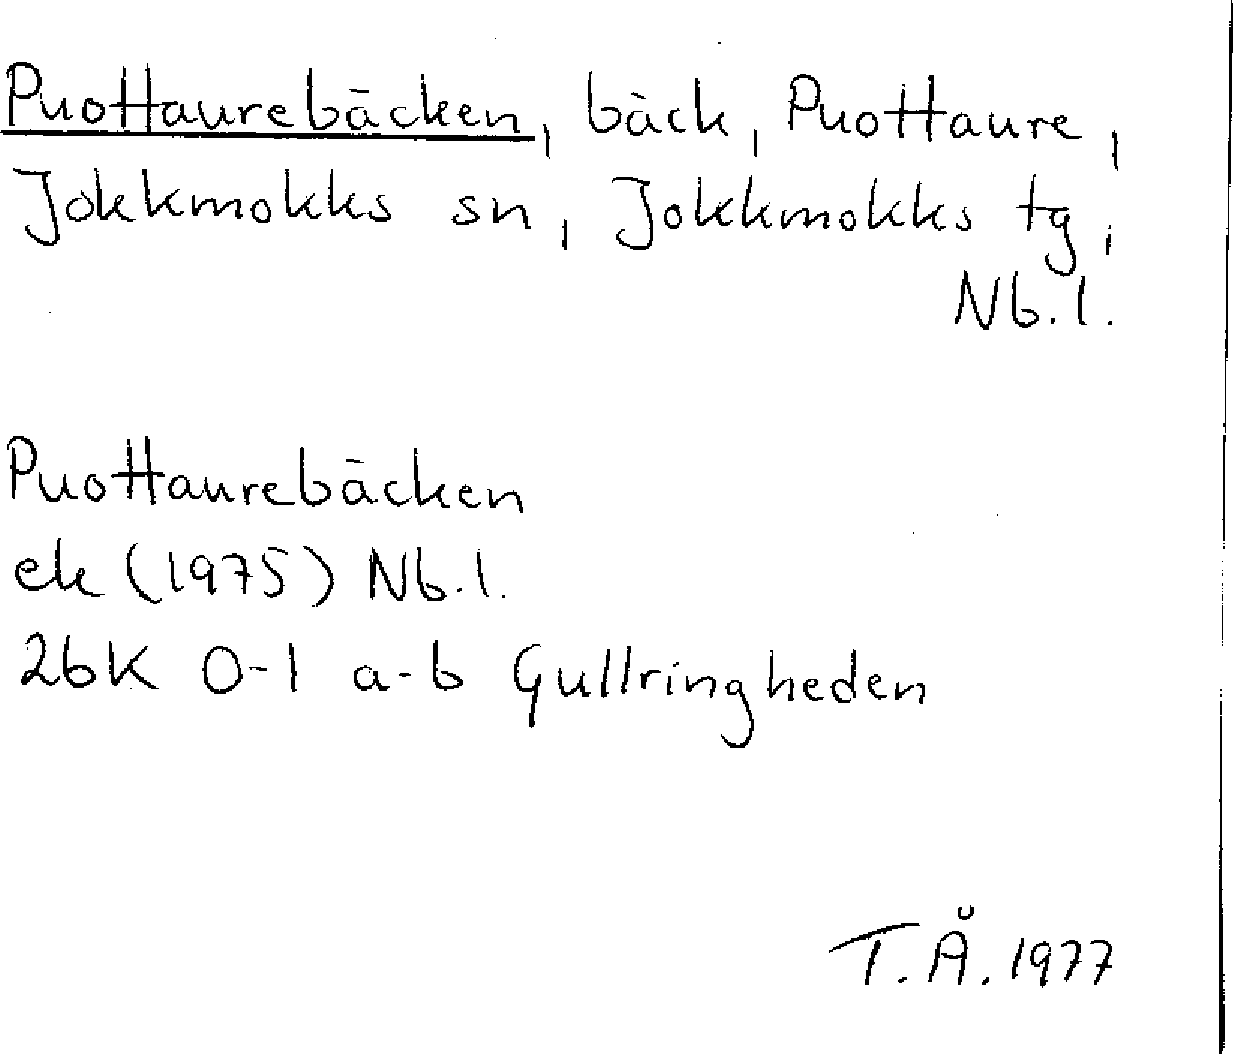 Puottaurebäcken, bäck, Puottaure,
Jokkmokks sn, Jokkmokks tg,
Nb.l.
Puottaurebäcken
ek (1975) Nb.l.
26K 0-1 a-b Gullringheden
T.Å. 1977